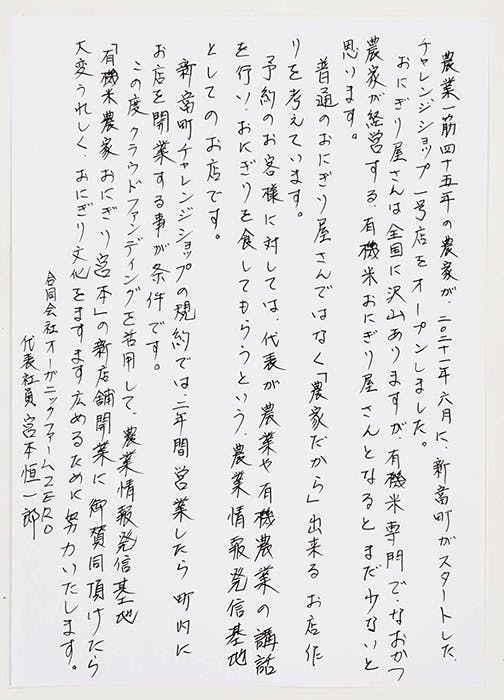 農業一筋四十五年の農家が、二〇二一年六月に、新富町がスタートした、
チャレンジショップ一号店をオープンしました。
おにぎり屋さんは全国に沢山ありますが、有機米専門で、なおかつ
農家が経営する、有機米おにぎり屋さんとなるとまだ少ないと
思います。
普通のおにぎり屋さんではなく「農家だから」出来るお店作
りを考えています。
予約のお客様に対しては、代表が農業や有機農業の講話
を行い、おにぎりを食してもらうという、農業情報発信基地
としてのお店です。
新富町チャレンジショップの規約では、二年間営業したら町内に
お店を開業する事が条件です。
この度クラウドファンディングを活用して、農業情報発信基地
「有機米農家おにぎり宮本」の新店舗開業に御賛同頂けたら
大変うれしく、おにぎり文化をますます広めるために努力いたします。
合同会社オーガニックファームZERO
代表社員 宮本恒一郎